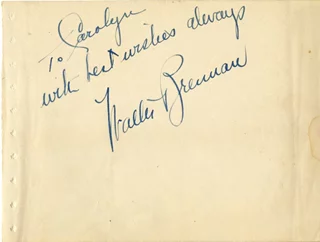 To Carolyn
with best wishes always
Walter Brennan